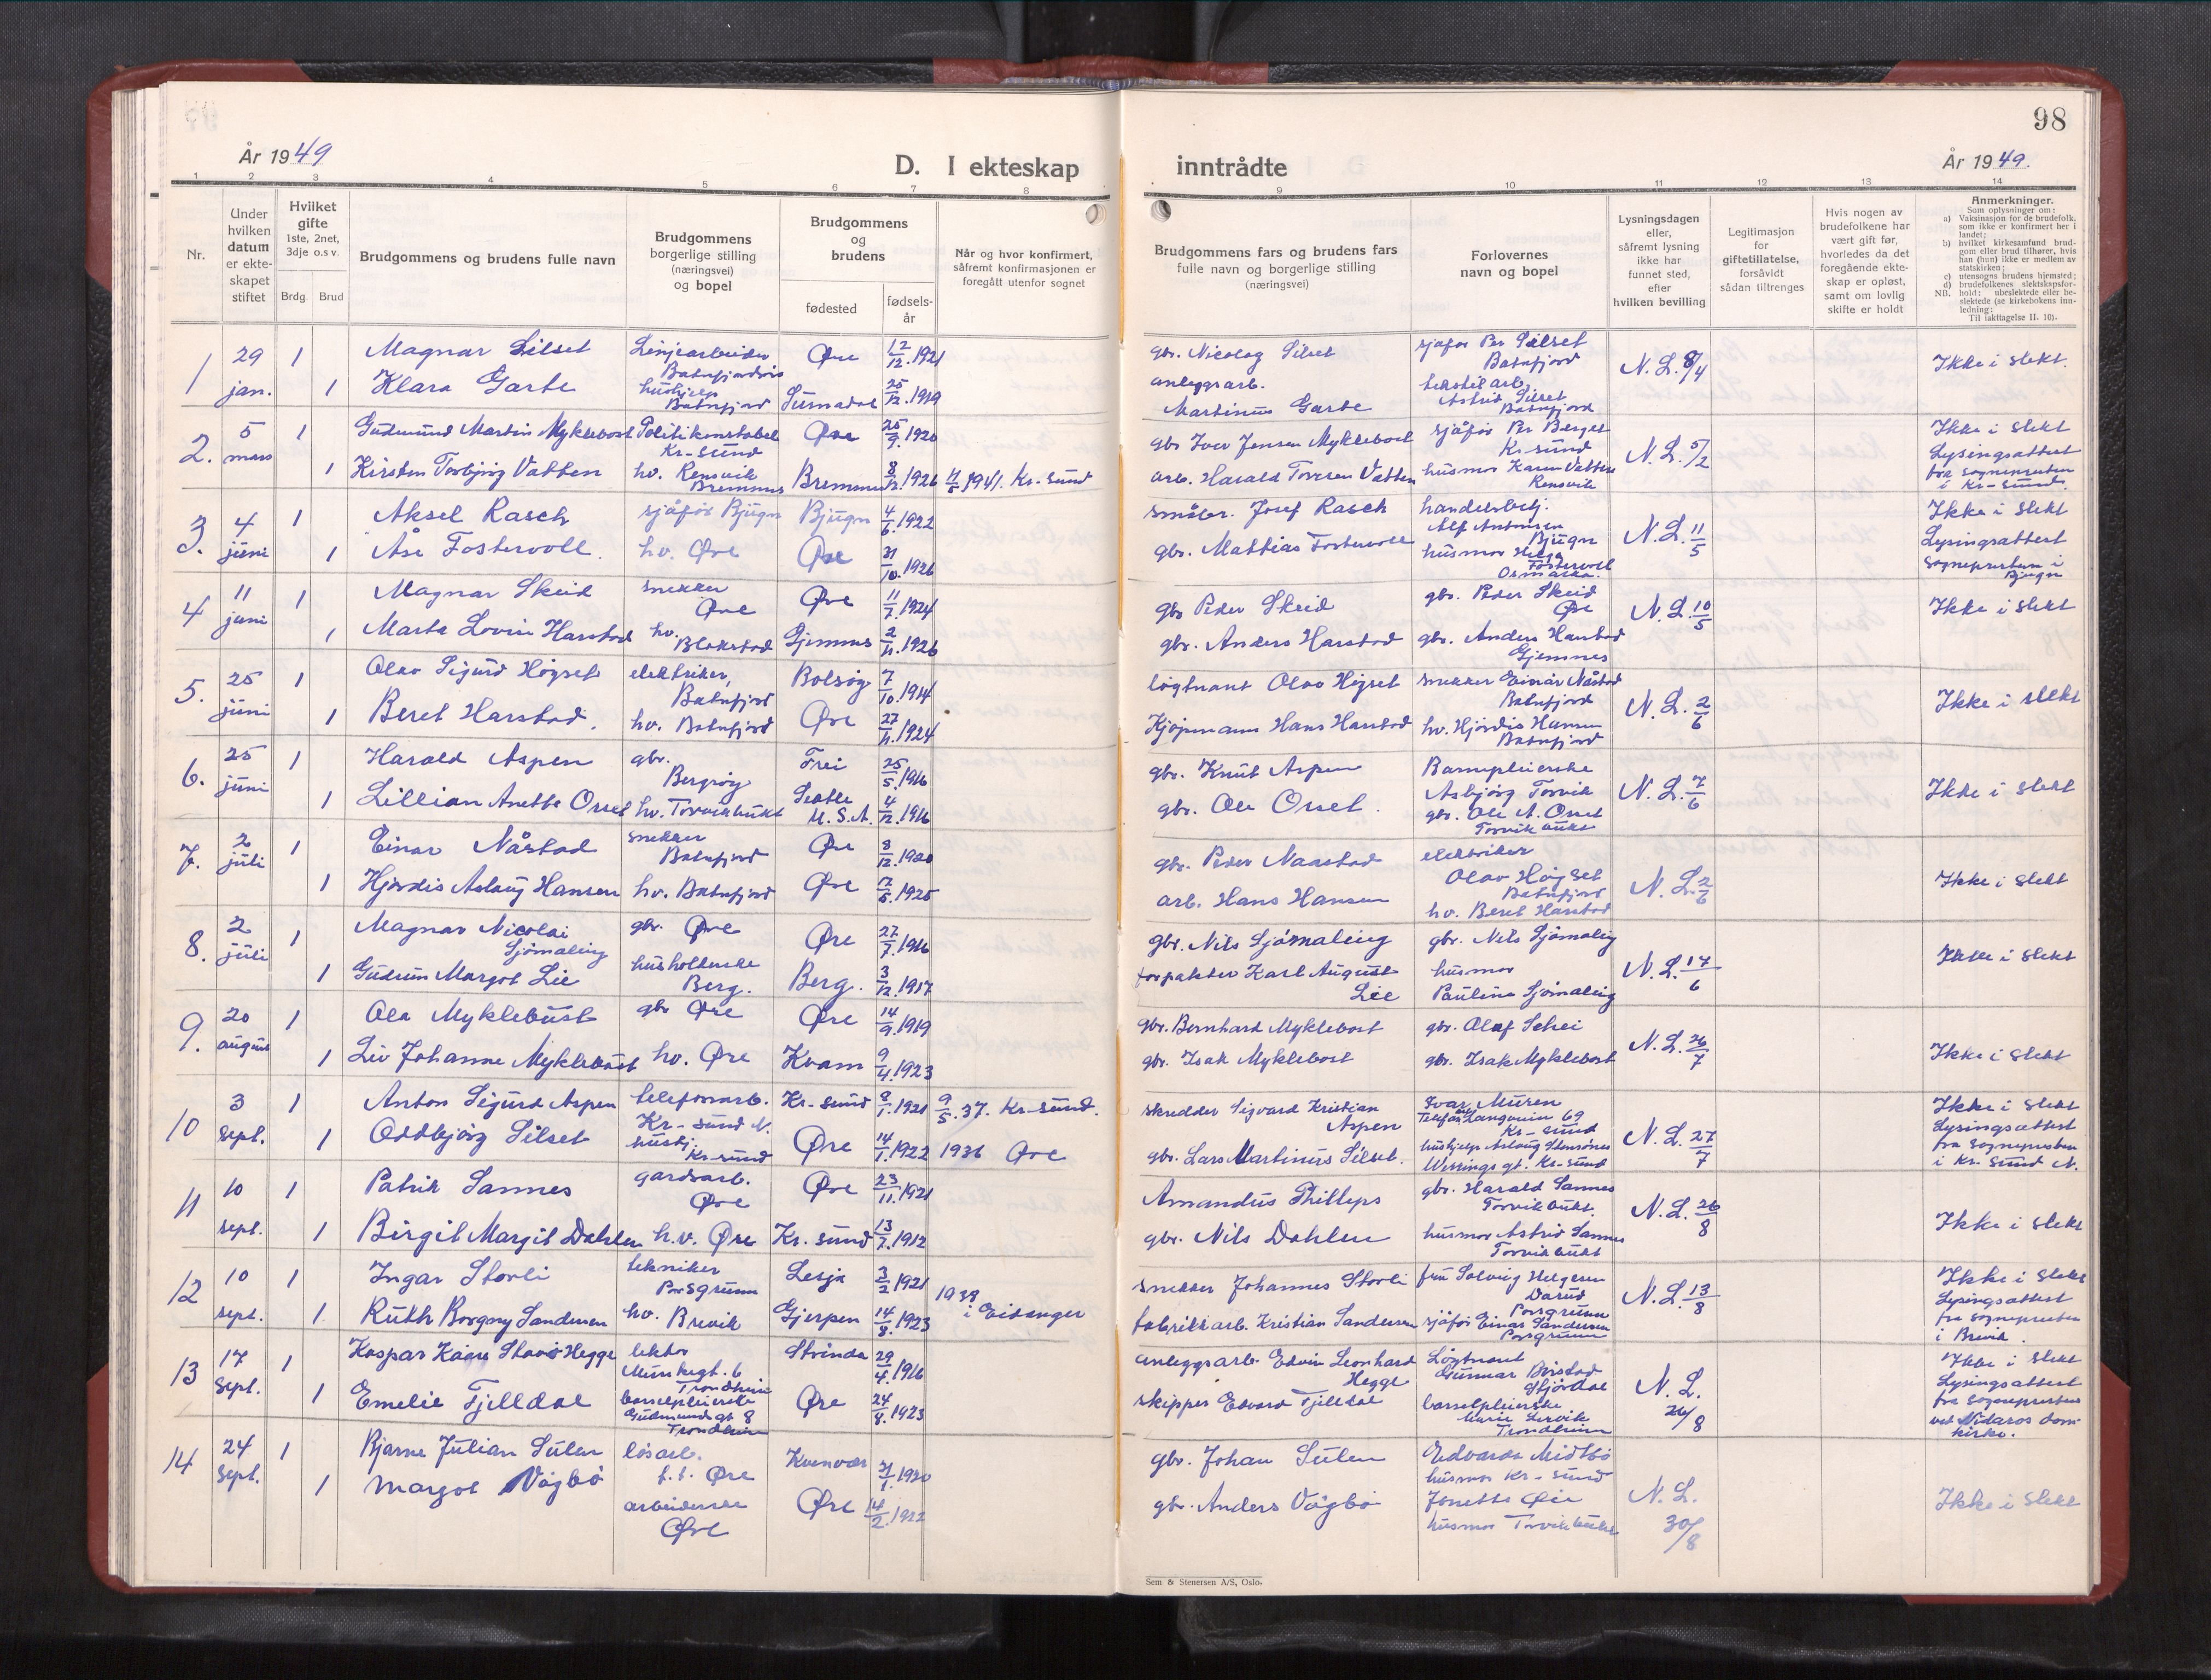 98
År 1949
D. I ekteskap
inntrådte
År 1949.
1 2 3 4 5 6 7 8 9 10 11 12 13 14
Nr.
Under hvilken datum er ekteskapet stiftet
Hvilket gifte 1ste, 2net, 3dje o.s.v.
Brdg. Brud
Brudgommens og brudens fulle navn
Brudgommens borgerlige stilling (næringsvei) og bopel
Brudgommens og brudens
fødested
fødsels-år
Når og hvor konfirmert, såfremt konfirmasjonen er foregått utenfor sognet
Brudgommens fars og brudens fars fulle navn og borgerlige stilling (næringsvei)
Forlovernes navn og bopel
Lysningsdagen eller, såfremt lysning ikke har funnet sted, efter hvilken bevilling
Legitimasjon for giftetillatelse, forsåvidt sådan tiltrenges
Hvis nogen av brudefolkene har vært gift før, hvorledes da det foregående ekteskap er opløst, samt om lovlig skifte er holdt
Anmerkninger.
Som oplysninger om:
a) Vaksinasjon for de brudefolk, som ikke er konfirmert her i landet;
b) hvilket kirkesamfund brudgom eller brud tilhører, hvis han (hun) ikke er medlem av statskirken;
c) utensogns brudens hjemsted;
d) brudefolkenes slektskapsforhold: ubeslektede eller beslektede (se kirkebokens innledning;
NB.
Til iakttagelse II. 10).
1 29 jan. 1 Magnar Silset Linjearbeider Batnfjordsøra Øre 12/12.1921 gbr. Nicolay Silset sjåfør Per Silset Batnfjord N.L. 8/4 Ikke i slekt.
1 Klara Garte hushjelp Batnfjord Surnadal 25/12.1919 anleggsarb. Martinus Garte tekstilarb. Astrid Silset Batnfjord
2. 5 mars 1 Gudmund Martin Myklebost Politikonstabel Kr-sund Øre 25/9.1920 gbr Iver Jensen Myklebost sjåfør Per Berget Kr-sund N.L. 5/2 Ikke i slekt
1 Kirsten Torbjørg Vatten hv. Rensvik Bremsnes Bremsnes 8/12.1926 11/5.1941. Kr-sund arb. Harald Toresen Vatten husmor Karen Vatten Rensvik Lysingsattest fra sognepresten i Kr-sund.
3. 4 juni 1 Aksel Rasch sjåfør Bjugn Bjugn 4/6.1922 småbr. Josef Rasch handelsbetj. Alf Antonsen Bjugn N.L. 11/5 Ikke i slekt
1 Åse Fostervoll. hv. Øre Øre 31/10.1926 gbr. Mattias Fostervoll husmor Helga Fostervoll Osmarka. Lysingsattest sognepresten i Bjugn
4 11 juni 1 Magnar Skeid snekker Øre Øre 11/7.1924 gbr Peder Skeid gbr. Peder Skeid Øre N.L. 10/5 Ikke i slekt
1 Marta Lovise Harstad hv. Blakstad Gjemnes 2/11.1926 gbr. Anders Harstad gbr. Anders Harstad Gjemnes
5. 25 juni 1 Olav Sigurd Høgset elektriker, Batnfjord Bolsøy 7/10.1914 løytnant Olav Høgset snekker Einar Nåstad Batnfjord N.L. 2/6 Ikke i slekt
1 Beret Harstad. hv. Batnfjord Øre 27/11.1924 Kjøpmann Hans Harstad hv. Hjördis Hansen Batnfjord
6. 25 juni 1 Harald Aspen gbr. Bergsøy Frei 25/5.1916 gbr. Knut Aspen Barnepleierske Asbjørg Torvik N.L. 7/6 Ikke i slekt
1 Lillian Anette Orset hv. Torvikbukt Seatle U.S.A. 4/12.1916 gbr. Ole Orset. gbr. Ole A. Orset Torvikbukt
7. 2 juli 1 Einar Nåstad snekker Batnfjord Øre 8/12.1920 gbr. Peder Naastad elektriker Olav Høgset Batnfjord N.L. 2/6 Ikke i slekt
1 Hjördis Aslaug Hansen hv. Batnfjord Øre 17/5.1925 arb. Hans Hansen hv. Beret Harstad
8. 2 juli 1 Magnar Nicolai Sjömæling gbr. Øre Øre 27/7.1916 gbr. Nils Sjömæling gbr. Nils Sjömæling N.L. 17/6 Ikke i slekt
1 Gudrun Margot Lie husholderske Berg. Berg. 3/12.1917 forpakter Karl August Lie husmor Pauline Sjömæling
9. 20 august 1 Ola Myklebust gbr Øre Øre 14/9.1919 gbr. Bernhard Myklebost gbr. Olaf Schei N.L. 26/7 Ikke i slekt
1 Liv Johanne Myklebust hv. Øre Kvam 9/4.1923 gbr. Isak Myklebost gbr. Isak Myklebost
10 3 sept. 1 Anton Sigurd Aspen telefonarb. Kr-sund N. Kr-sund 8/1.1921 9/5.37. Kr-sund. skredder Sigvard Kristian Aspen Ivar Muren Langveien 69 Kr-sund N.L. 27/7 Ikke i slekt
1 Oddbjörg Silset hushj. Kr-sund Øre 14/1.1922 1936 Øre gbr. Lars Martinus Silset. hushjelp Aslaug Wessings gt. Kr-sund Lysingsattest fra sognepresten i Kr. sund N.
11 10 sept. 1 Patrik Sannes gardsarb. Øre Øre 23/11.1921 Amandus Phillips gbr. Harald Sannes Torvikbukt. N.L. 26/8 Ikke i slekt
1 Birgit Margit Dahlen h.v. Øre Kr. sund 13/7.1912 gbr. Nils Dahlen husmor Astrid Sannes Torvikbukt
12 10 sept. 1 Ingar Storli tekniker Porsgrunn Lesja 3/2.1921 snekker Johannes Storli fru Solveig Helgesen Porsgrunn N.L. 13/8 Ikke i slekt
1 Ruth Borgny Sandersen hv. Brevik Gjerpen 14/8.1923 1938 i Eidanger fabrikkarb. Kristian Sandersen sjåfør Einar Sandersen Porsgrunn Lysingsattest fra sognepresten i Brevik.
13 17 sept. 1 Kaspar Kåre Stavö Hegge lektor Munkegt. 6 Trondheim Strinda 29/4.1916 anleggsarb. Edvin Leonhard Hegge Løytnant Gunnar Stjördal N.L. 26/8 Ikke i slekt
1 Emelie Fjelldal barselpleierske gt 8 Trondheim Øre 24/8.1923 skipper Edvard Fjelldal barselpleierske Marie Trondheim Lysingsattest fra sognepresten ved Nidaros domkirke.
14 24 sept. 1 Bjarne Julian Sulen lösarb. f.t. Øre Kvenvær 21/1.1920 gbr. Johan Sulen Edvarda Midtbö husmor Kr-sund N.L. 30/8 Ikke i slekt
1 Margot Vågbö arbeiderske Øre Øre 14/2.1922 gbr. Anders Vågbö Jonette Øie husmor Torvikbukt
Sem & Stenersen A/S, Oslo.